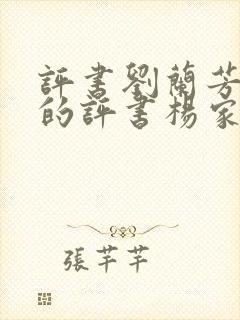 評書劉蘭芳
的評書楊家
張芊芊